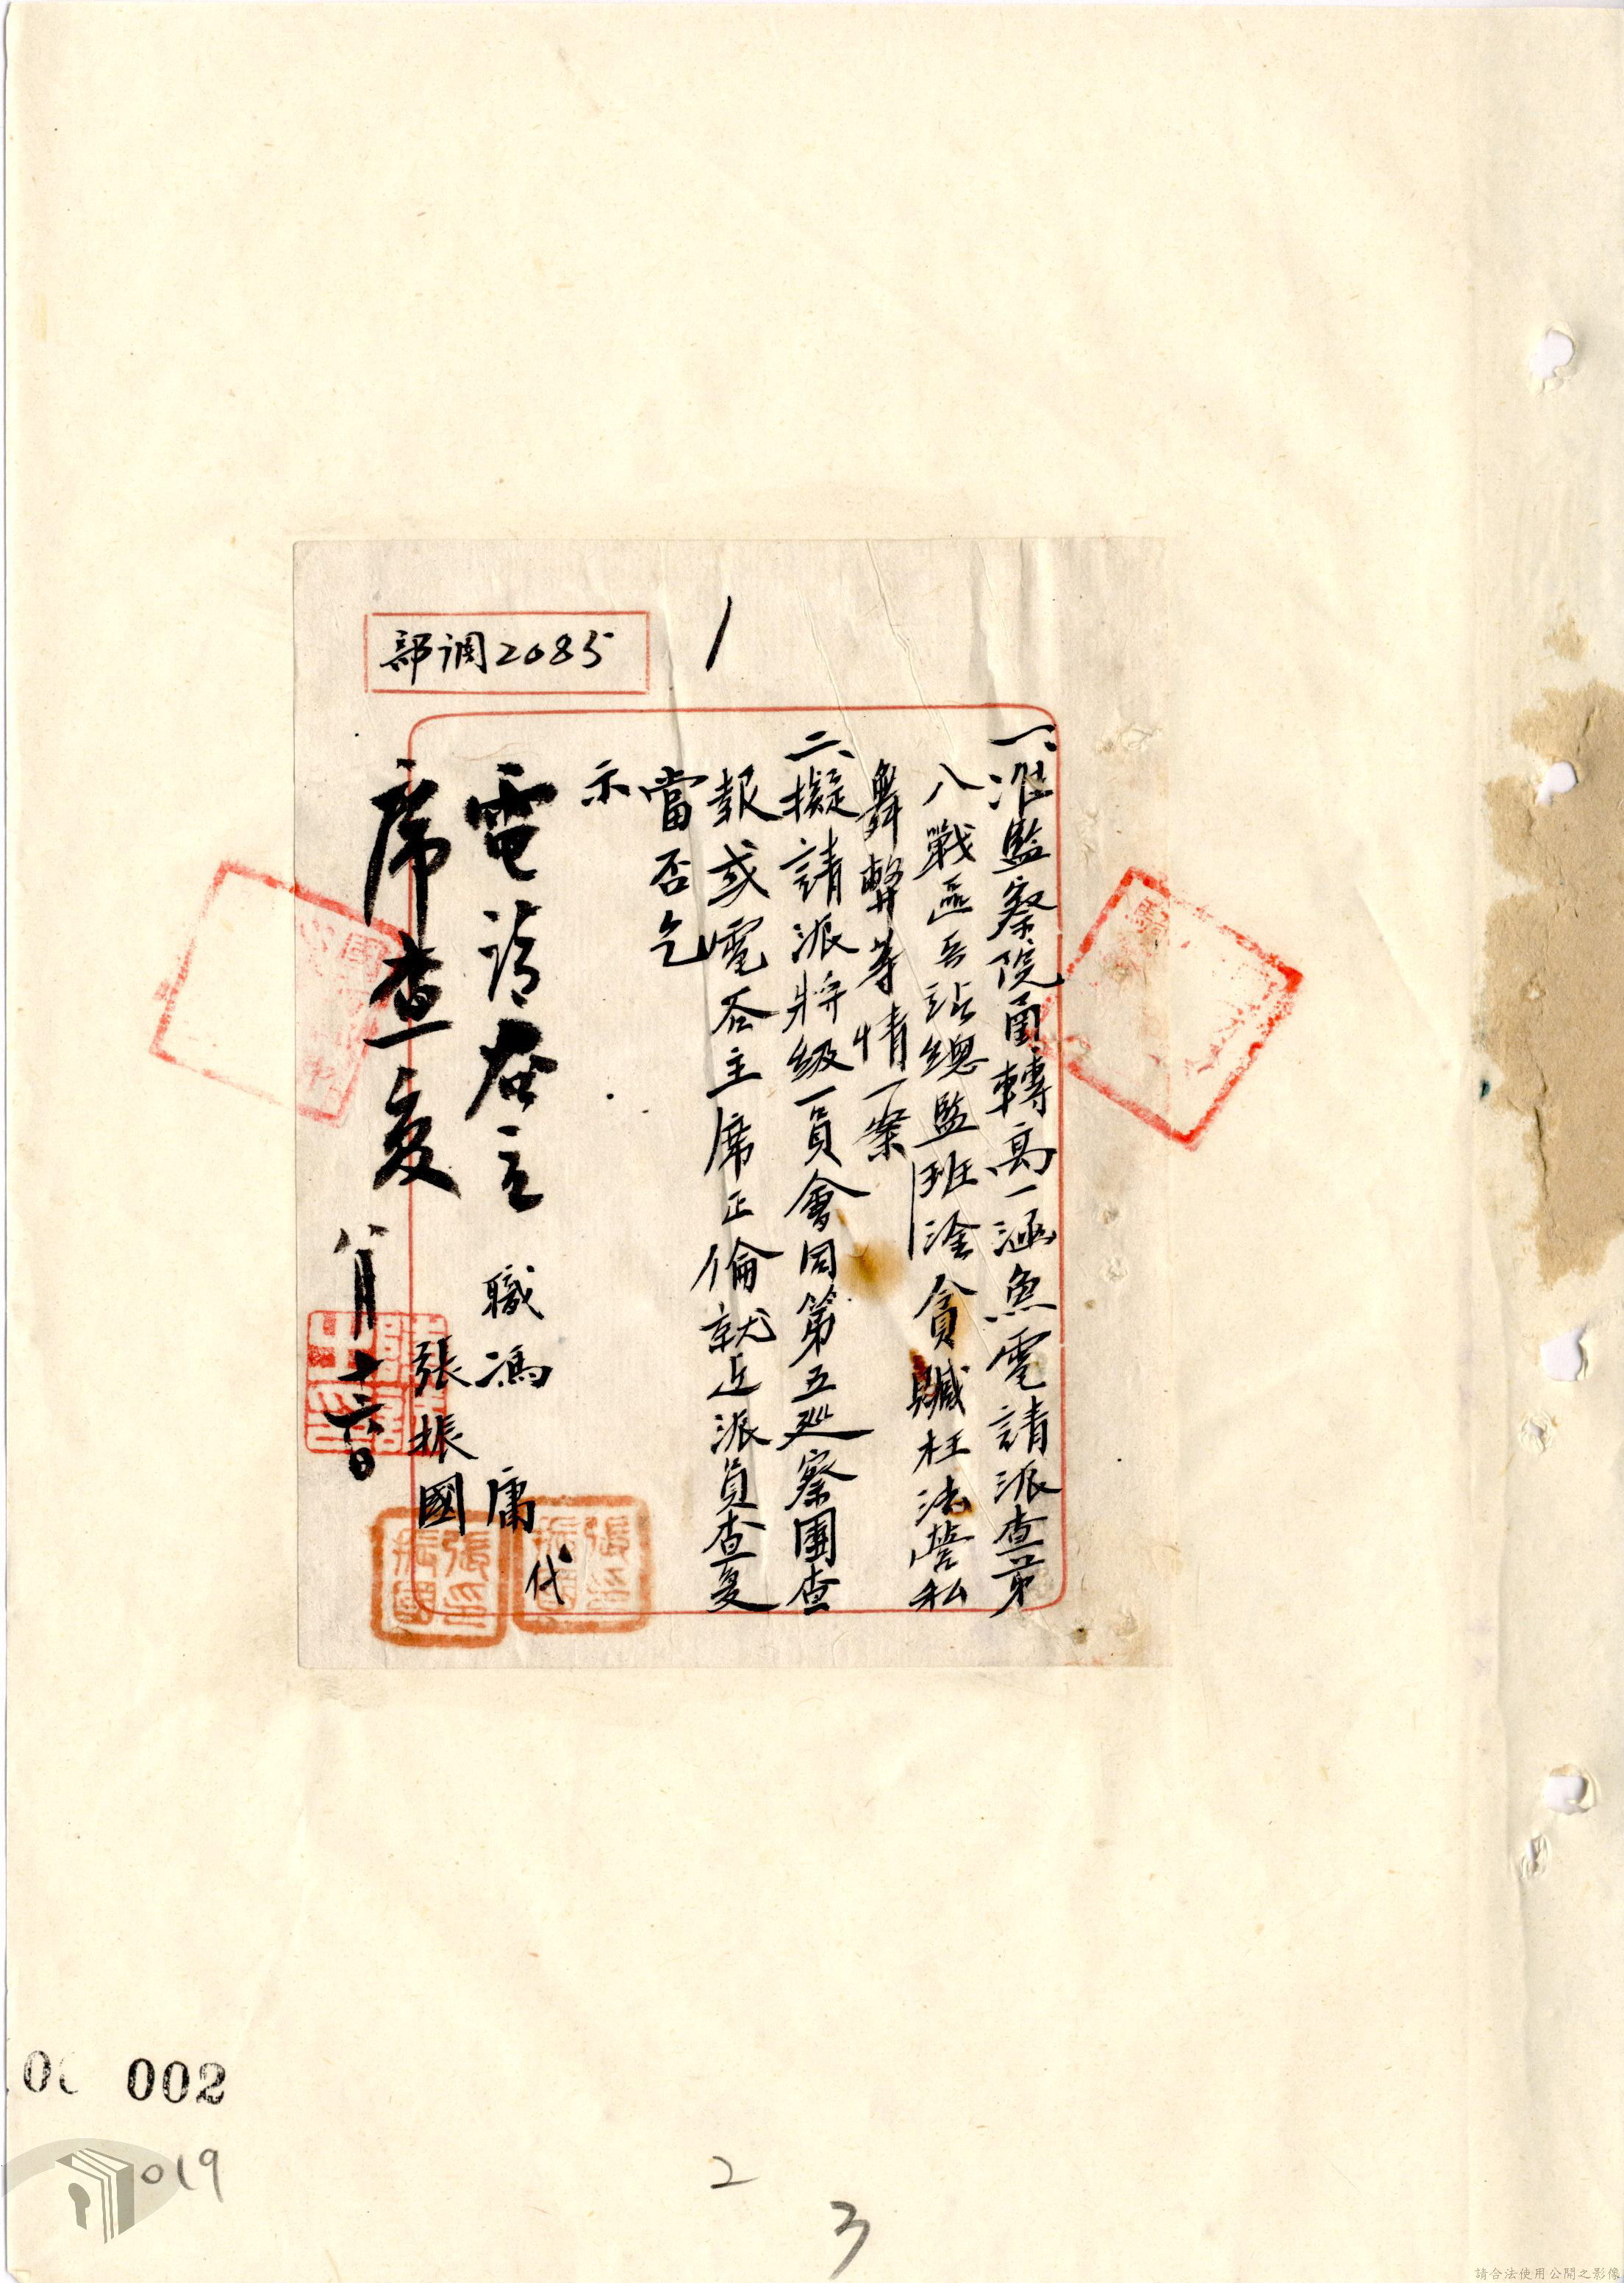 部調2085
1
一、准監察院函轉高一涵魚電請派查第
八戰區兵站總監班淦貪贓枉法營私
舞弊等情一案
二、擬請派將級一員會同第五巡察團查
報或電谷主席正倫就近派員查复
當否乞
示
職馮庸代
張振國
電請谷主
席查复
八月十六日
002
019
2
3
請合法使用公開之影像